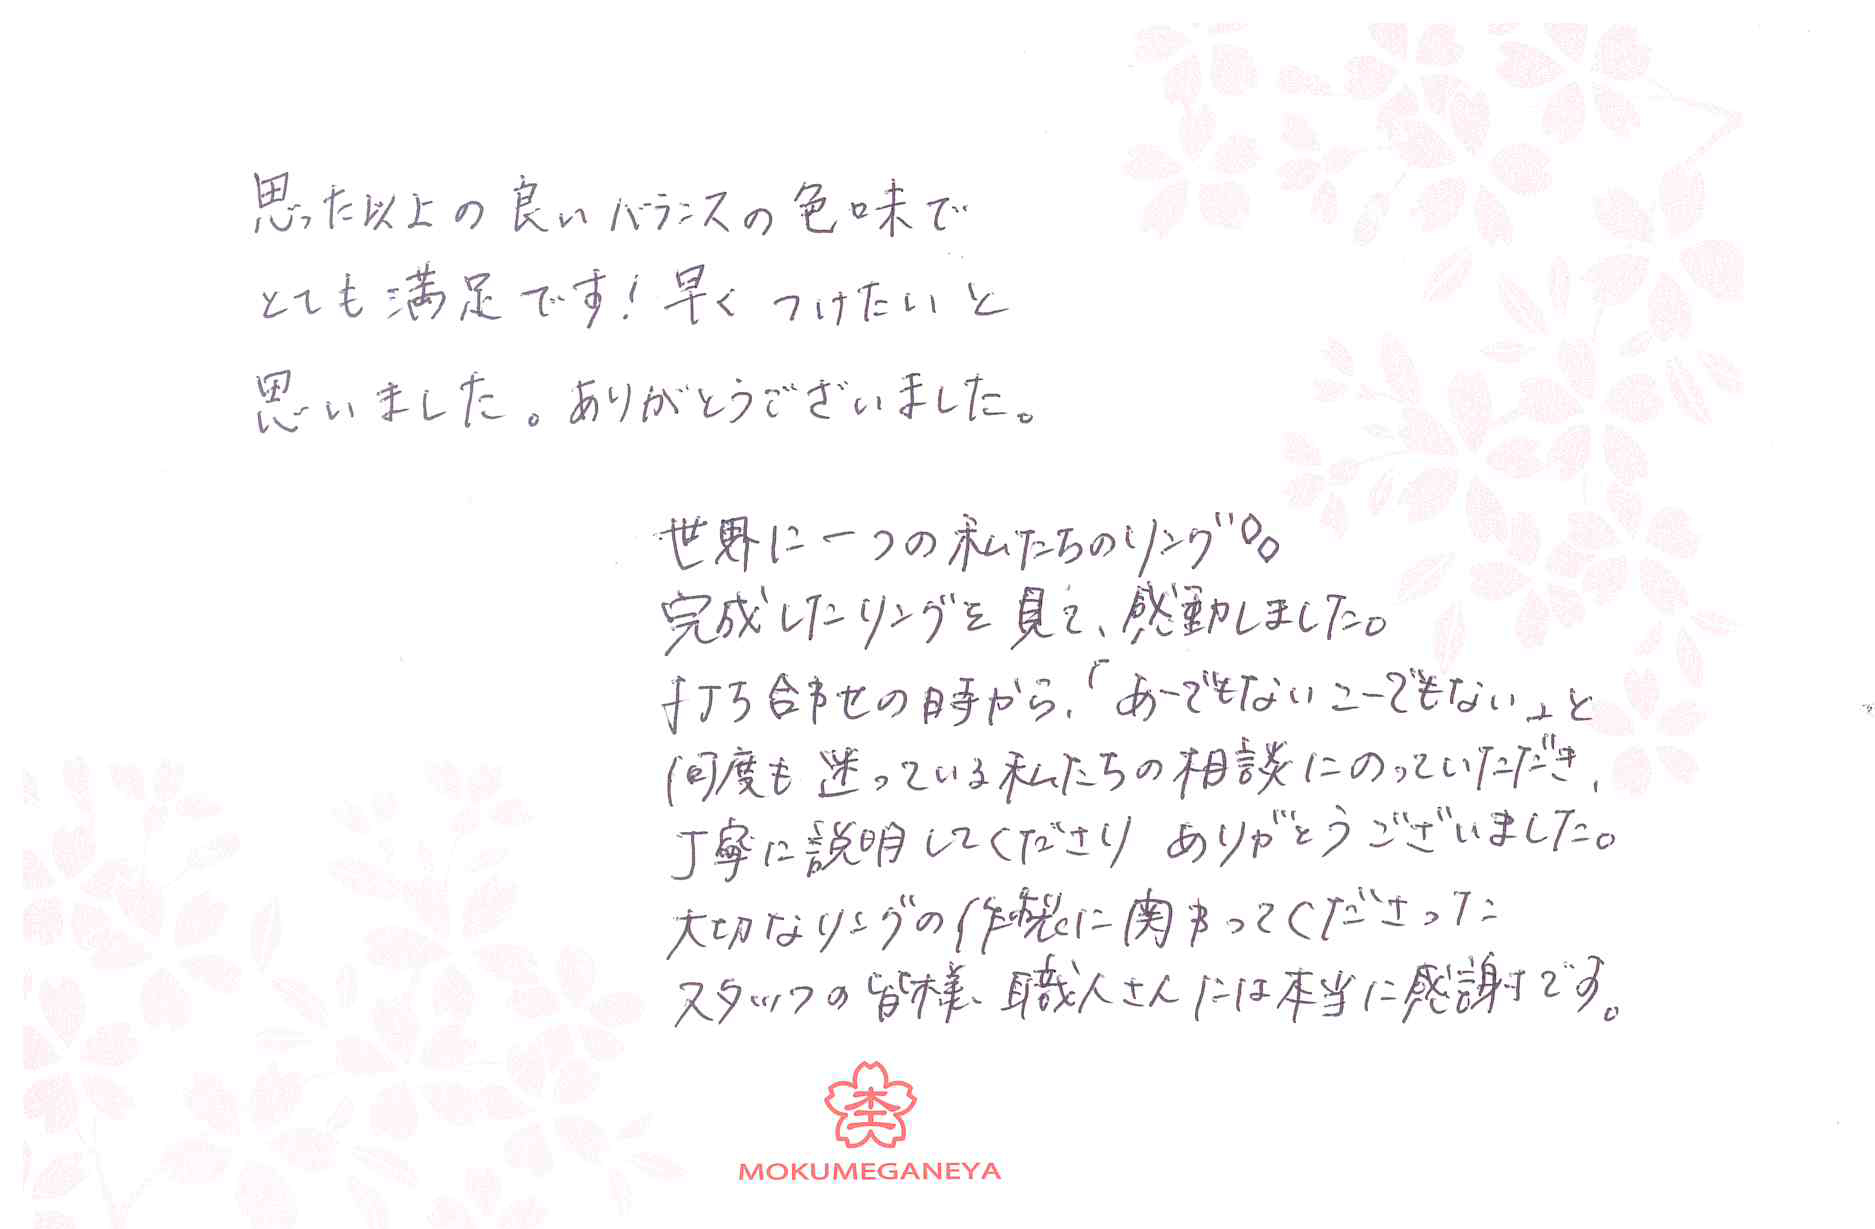 思った以上の良いバランスの色味で
とても満足です!早くつけたいと
思いました。ありがとうございました。
世界に一つの私たちのリング
完成したリングを見て、感動しました。
打ち合わせの時から、「あーでもないこーでもない」と
何度も迷っている私たちの相談にのっていただき、
丁寧に説明してくださり ありがとうございました。
大切なリングの作製に関わってくださった
スタッフの皆様、職人さんには本当に感謝です。
杢
MOKUMEGANEYA